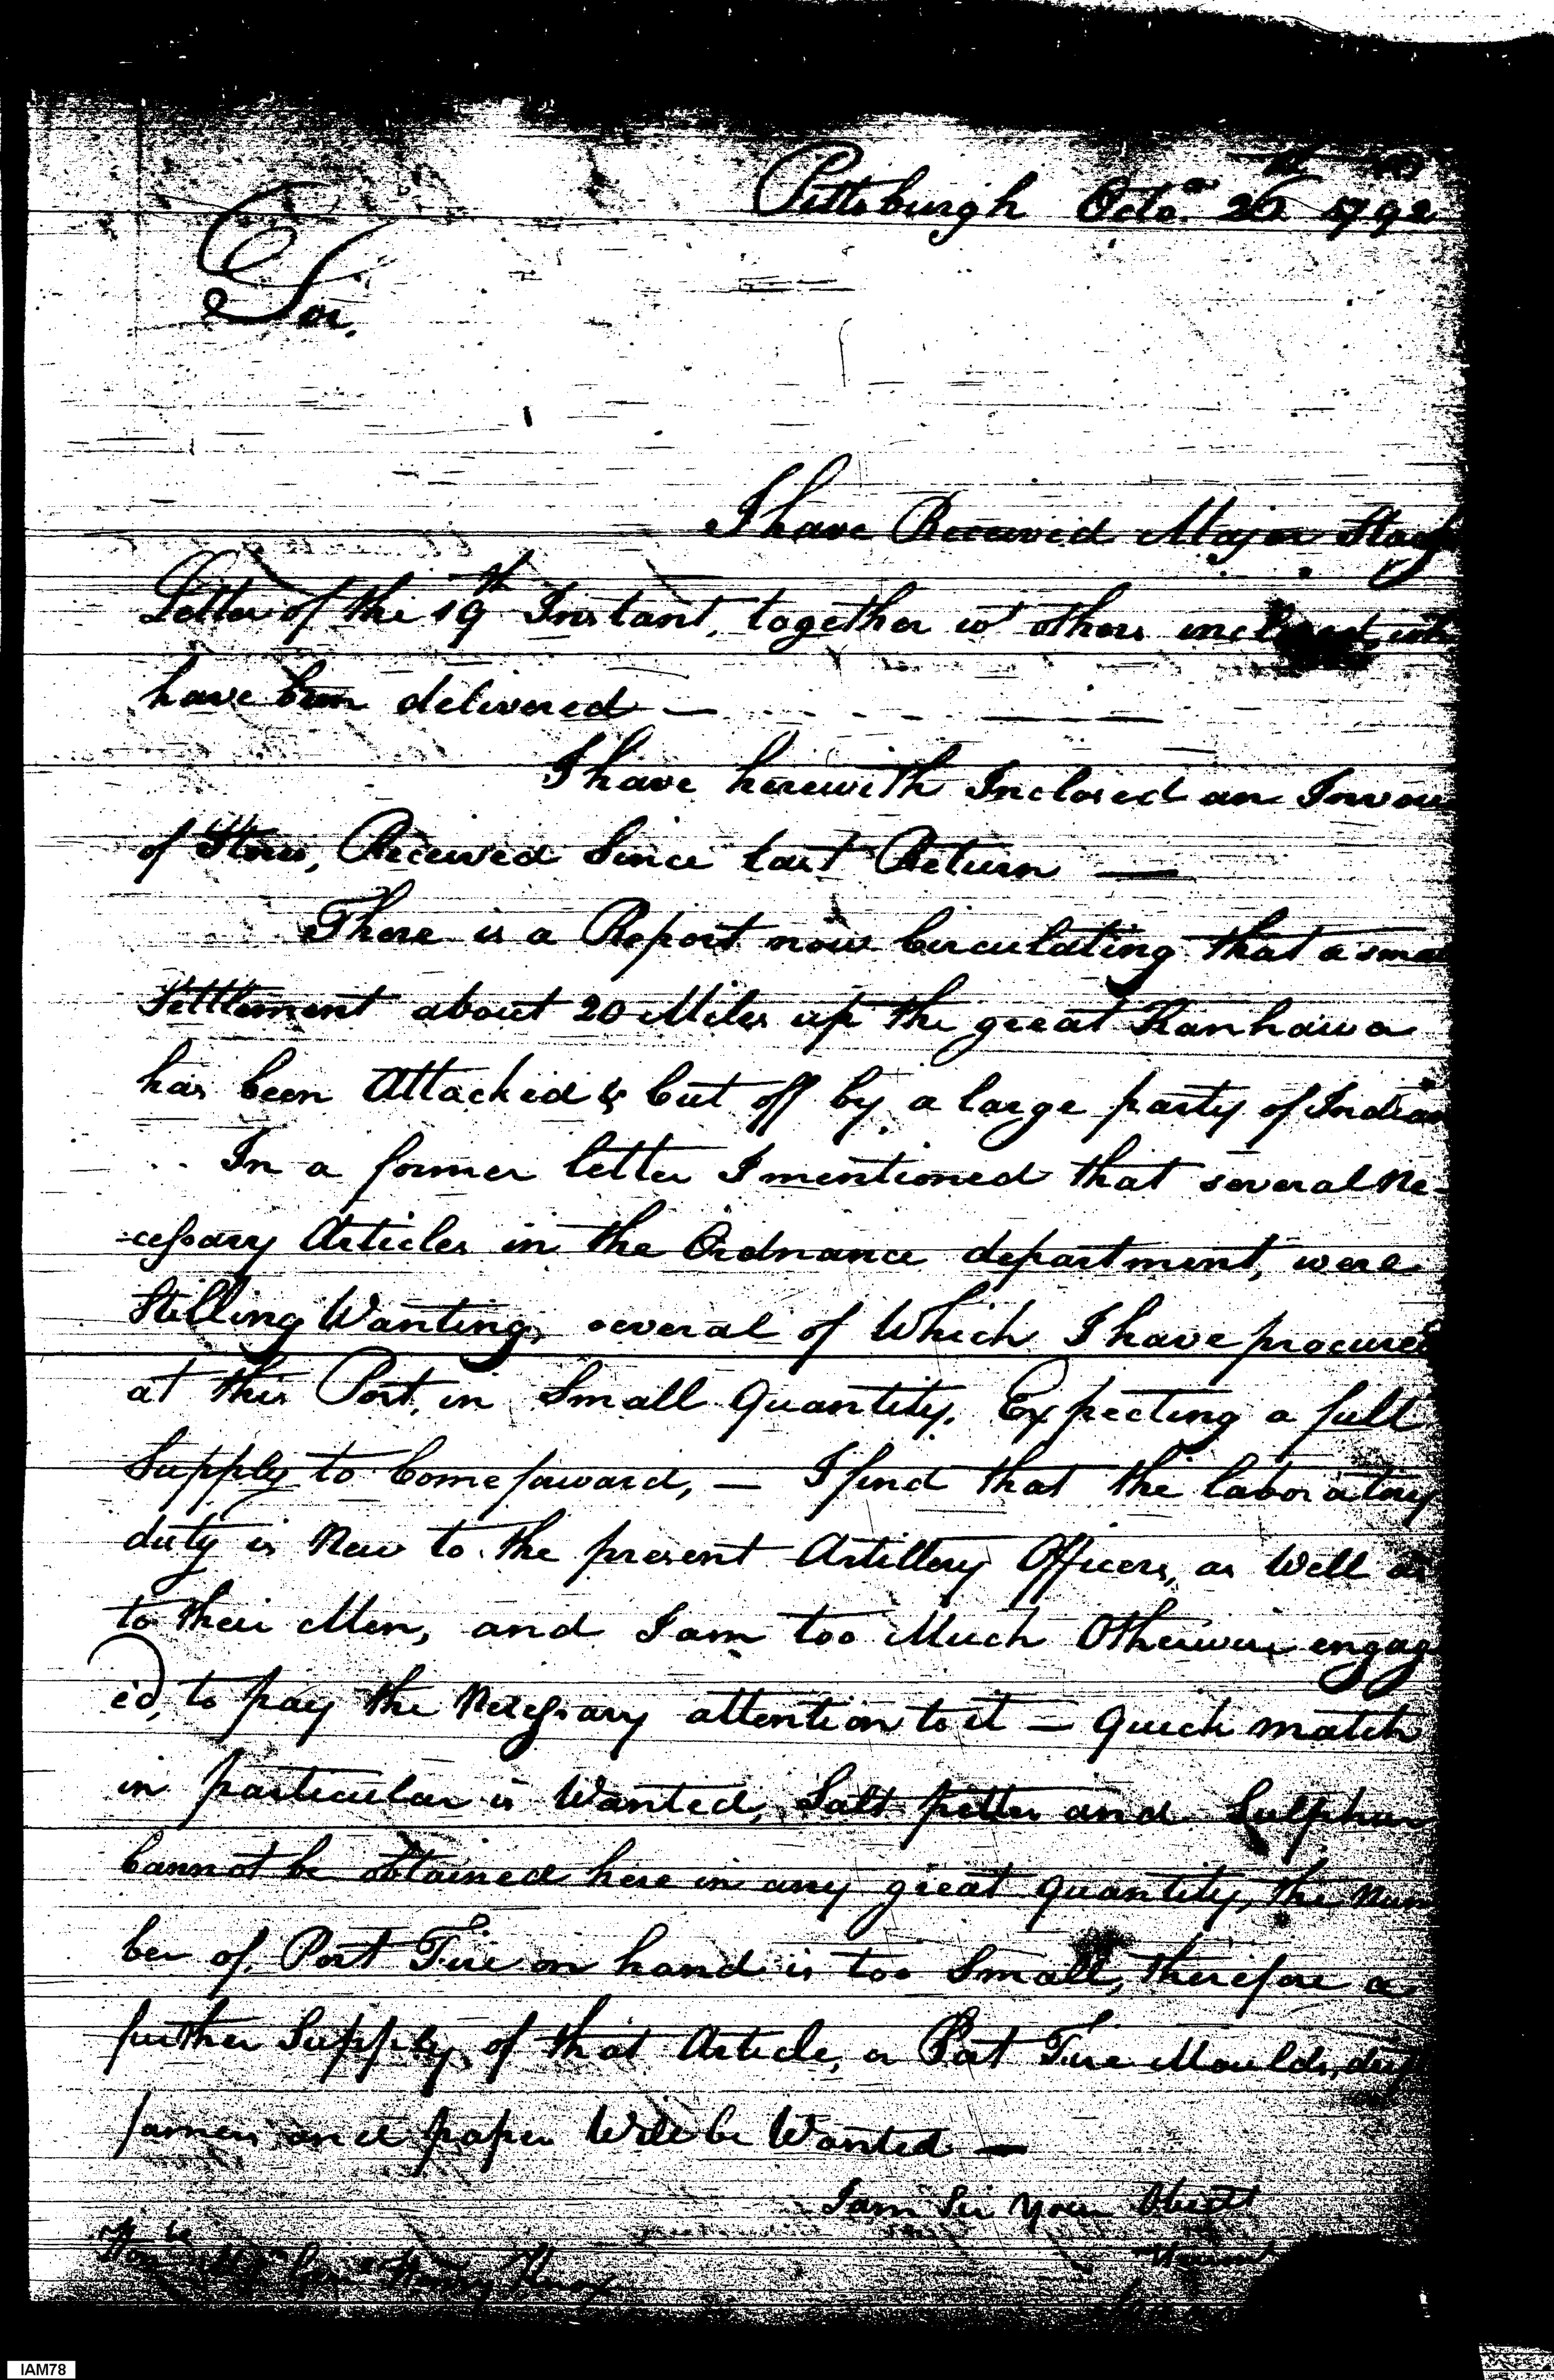 Pittsburgh Octo.er 26th 1792
Sir,
I have Received Major Stag
Letter of the 19th Instant, together wt others inclosed,
have been delivered —
I have herewith Inclosed an Invoi
of Stores, Received Since last Return —
There is a Report now Circulating that a smal
Settlement about 20 Miles up the great Kanhawa
has been Attacked & Cut off by a large party of Indian
In a former letter I mentioned that several Ne-
-cessary Articles in the Ordnance department, were
Stilling Wanting, several of Which I have procured
at this Post, in Small Quantity, Expecting a full
Supply to Come forward, — I find that the laboratory
duty is New to the present Artillery Officers, as Well as
to their Men, and I am too Much Otherwise engag
ed, to pay the Necessary attention to it — Quick match
in particular is Wanted, Salt petter and Sulphur
Cannot be obtained here in any great quantity, the Num
ber of Port Fire on hand is too Small, therefore a
further Supply of that Article, or Port Fire Moulds,
and paper Will be Wanted —
I am Sir your Obedt
Honble Genl Henry Knox
IAM78